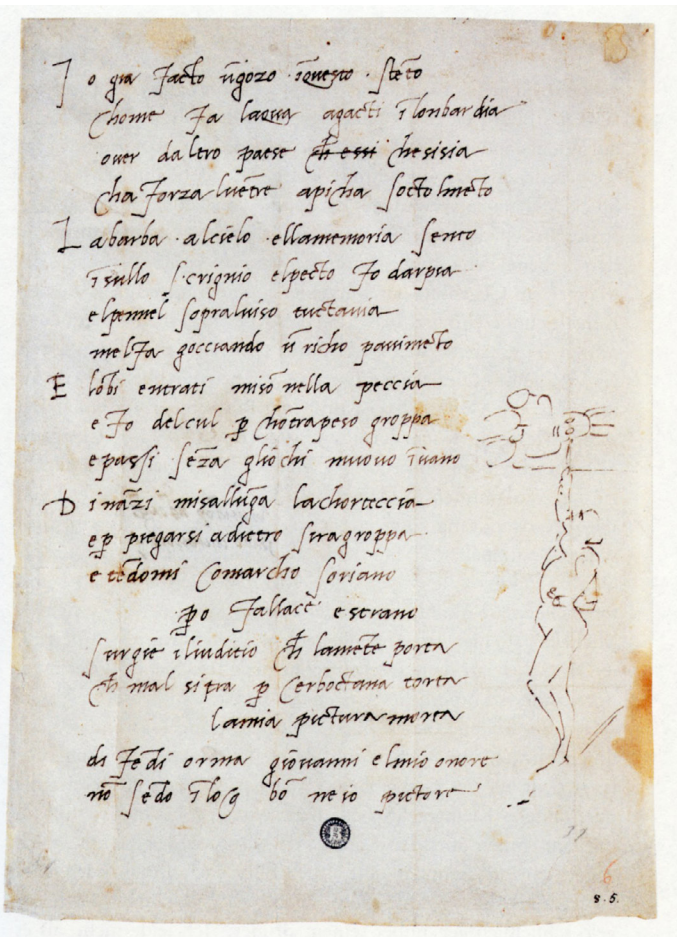 Io gia facto ũgozo ĩquesto stẽto
chome fa laqua agacti ĩ lonbardia
over daltro paese ch̃ essi chesisia
cha forza lvẽtre apicha socto lmẽto
La barba alcielo ellamemoria sento
ĩsullo scrignio elpecto fo darpia
elpennel sopralviso tuctavia
melfa gocciando ũ richo pavimẽto
E lõbi entrati misõ nella peccia
e fo delcul p̱ chõtrapeso groppa
epassi sẽza gliochi muovo ĩvano
Dinãzi misallũga lachorteccia
ep̱ piegarsi adietro siragroppa
e tẽdomi Comarcho soriano
p̱o fallace estrano
surgie ĩliuditio ch̃ lamẽte porta
ch̃ mal sitra p̱ cerboctana torta
lamia pictura morta
di fẽdi orma giovanni elmio onore
nõ sẽdo ĩlog bõ ne io pictore
6
8.5.